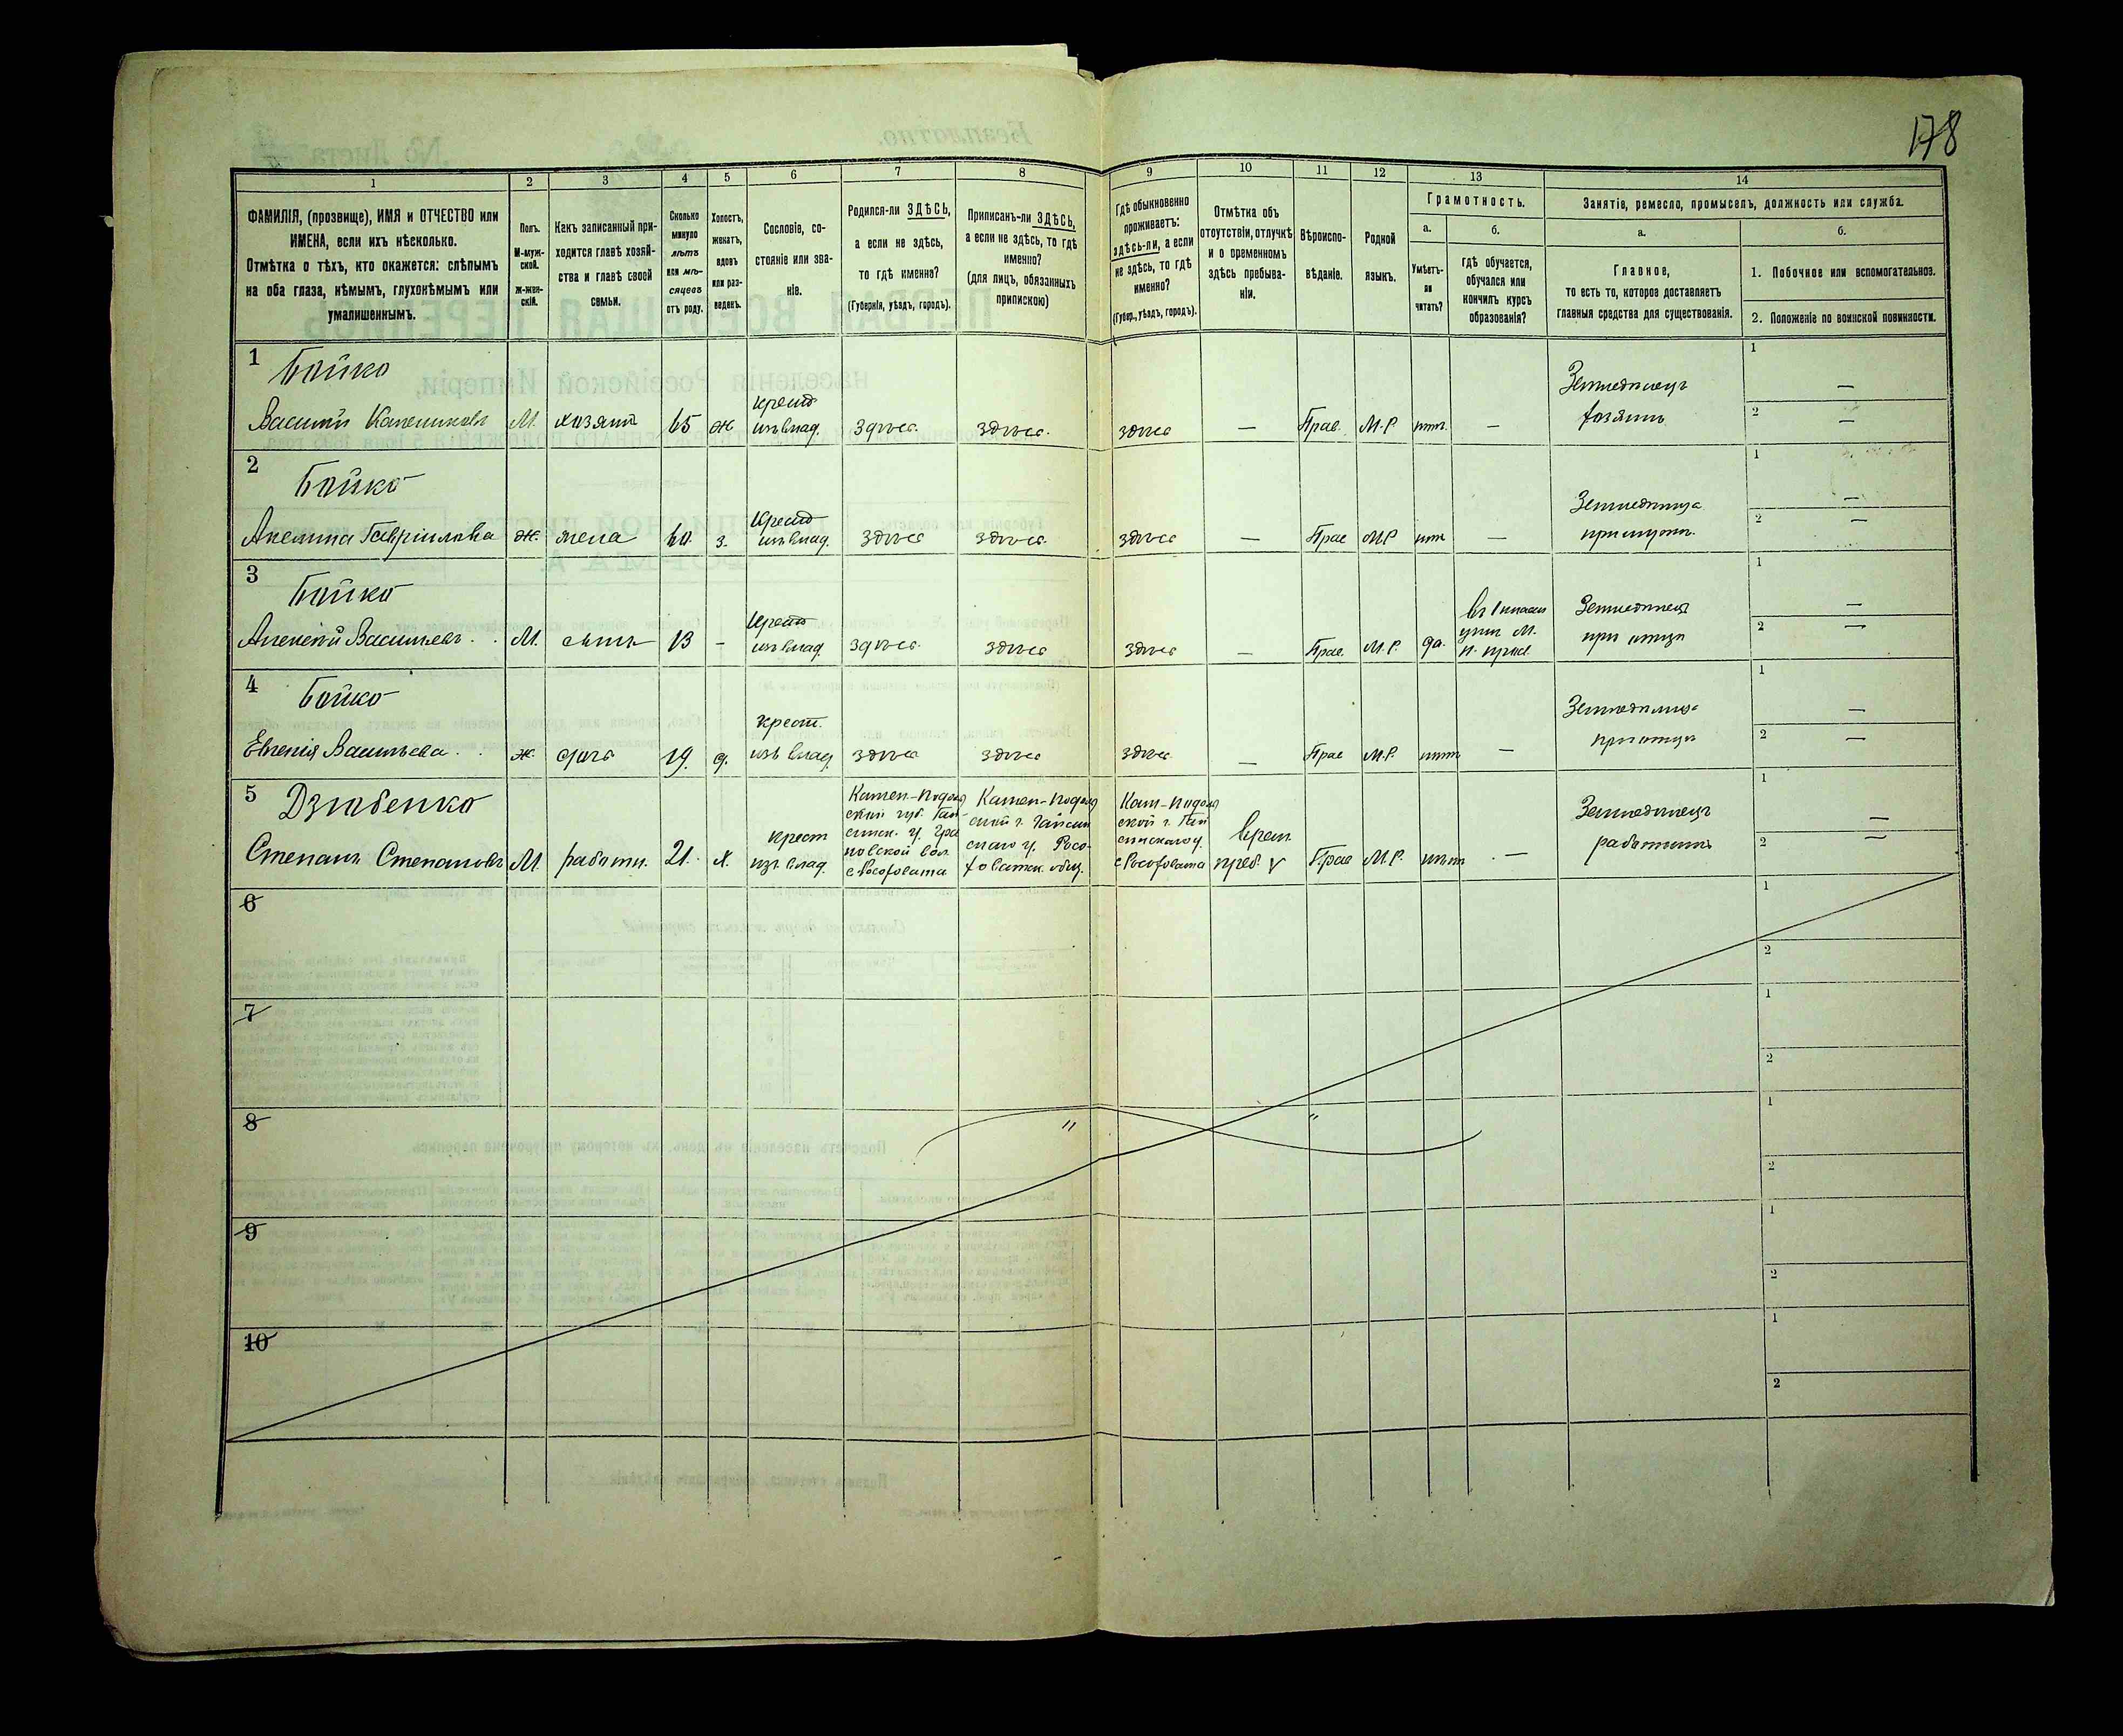 178
1
2
3
4
5
6
7
8
9
10
11
12
13
14
ФАМИЛІЯ, (прозвище), ИМЯ и ОТЧЕСТВО или
ИМЕНА, если ихъ нѣсколько.
Отмѣтка о тѣхъ, кто окажется: слѣпымъ
на оба глаза, нѣмымъ, глухонѣмымъ или
умалишеннымъ.
Полъ.
М-муж-
ской.
Ж-жен-
скій.
Какъ записанный при-
ходится главѣ хозяй-
ства и главѣ своей
семьи.
Сколько
минуло
лѣтъ
или мѣ-
сяцевъ
отъ роду.
Холостъ,
женатъ,
вдовъ
или раз-
веденъ.
Сословіе, со-
стояніе или зва-
ніе.
Родился-ли ЗДѢСЬ,
а если не здѣсь,
то гдѣ именно?
(Губернія, уѣздъ, городъ).
Приписанъ-ли ЗДѢСЬ,
а если не здѣсь, то гдѣ
именно?
(для лицъ, обязанныхъ
припискою)
Гдѣ обыкновенно
проживаетъ:
здѣсь-ли, а если
не здѣсь, то гдѣ
именно?
(Губер., уѣздъ, городъ).
Отмѣтка объ
отсутствіи, отлучкѣ
и о временномъ
здѣсь пребыва-
ніи.
Вѣроиспо-
вѣданіе.
Родной
языкъ.
Грамотность.
а.
Умѣетъ-
ли
читать?
б.
гдѣ обучается,
обучался или
кончилъ курсъ
образованія?
Занятіе, ремесло, промыселъ, должность или служба.
а.
Главное,
то есть то, которое доставляетъ
главныя средства для существованія.
б.
1. Побочное или вспомогательное.
2. Положеніе по воинской повинности.
1 Бойко
Василій М. хозяинъ 65 ж крест. изъ влад. здѣсь здѣсь здѣсь — Прав. М.Р. нѣтъ —
Земледѣлецъ
хозяинъ
1 —
2 —
2 Бойко
Акелина Гаврилова ж. жена 60 з. крест. изъ влад. здѣсь здѣсь здѣсь — Прав М.Р нѣт —
Земледѣлица
при мужѣ
1 —
2 —
3 Бойко
Алексѣй Васильевъ М. сынъ 13 - крест. изъ влад. здѣсь здѣсь здѣсь — Прав. М.Р. да.
Земледѣлец
при отцѣ
1 —
2 —
4 Бойко
Евгенія Васильева ж. дочь 19. д. крест. изъ влад. здѣсь здѣсь здѣсь — Прав М.Р. нѣтъ —
Земледѣлица
при отцѣ
1 —
2 —
5 Дзюбенко
Степанъ Степановъ М. работн. 21. х. крест изъ влад.
Камен-Подоль
ской губ. Гай
синск. у.
новской вол.
с Росоховата
Камен-Подоль
ской г. Гайсин
скаго у. Росо-
ховатск. общ.
Кам-Подоль
ской г. Гай
синскаго у.
с Росоховата
врем.
преб.
Прав М.Р. нѣтъ —
Земледѣлецъ
работникъ
1 —
2 —
6
1
2
7
1
2
8
1
2
9
1
2
10
1
2